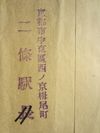 京都市中京區西ノ京栂尾町
二條駅